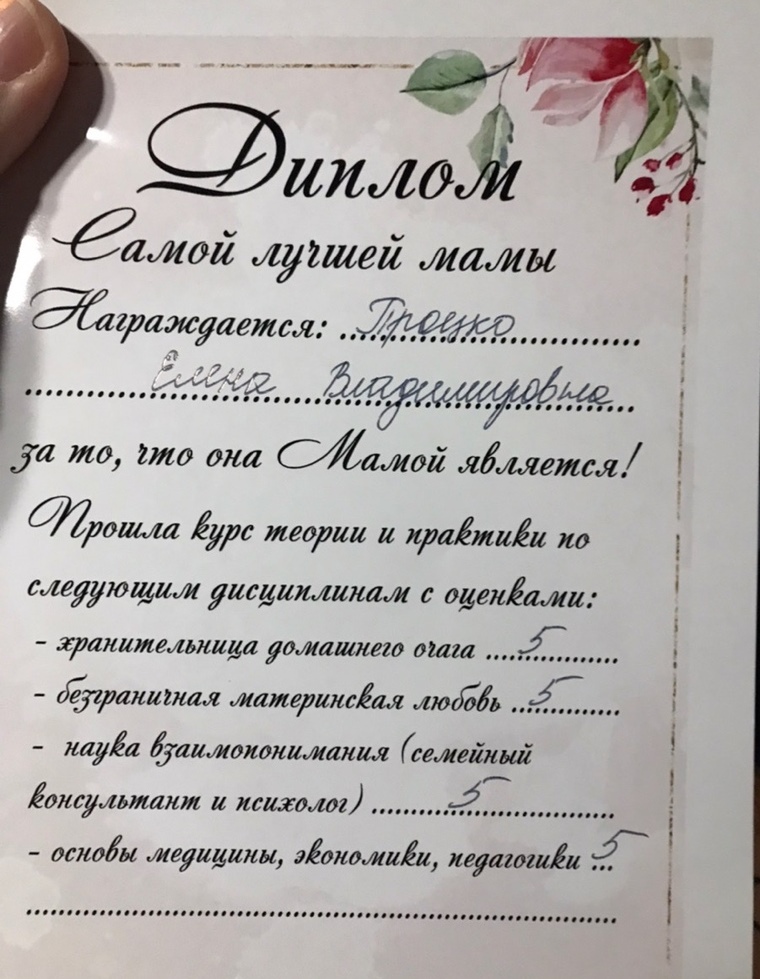 Диплом
Самой лучшей мамы
Награждается: Процко
Елена Владимировна
за то, что она Мамой является!
Прошла курс теории и практики по
следующим дисциплинам с оценками:
- хранительница домашнего очага ....5..........
- безграничная материнская любовь ..5..........
- наука взаимопонимания (семейный
консультант и психолог) ..........5..............
- основы медицины, экономики, педагогики 5...